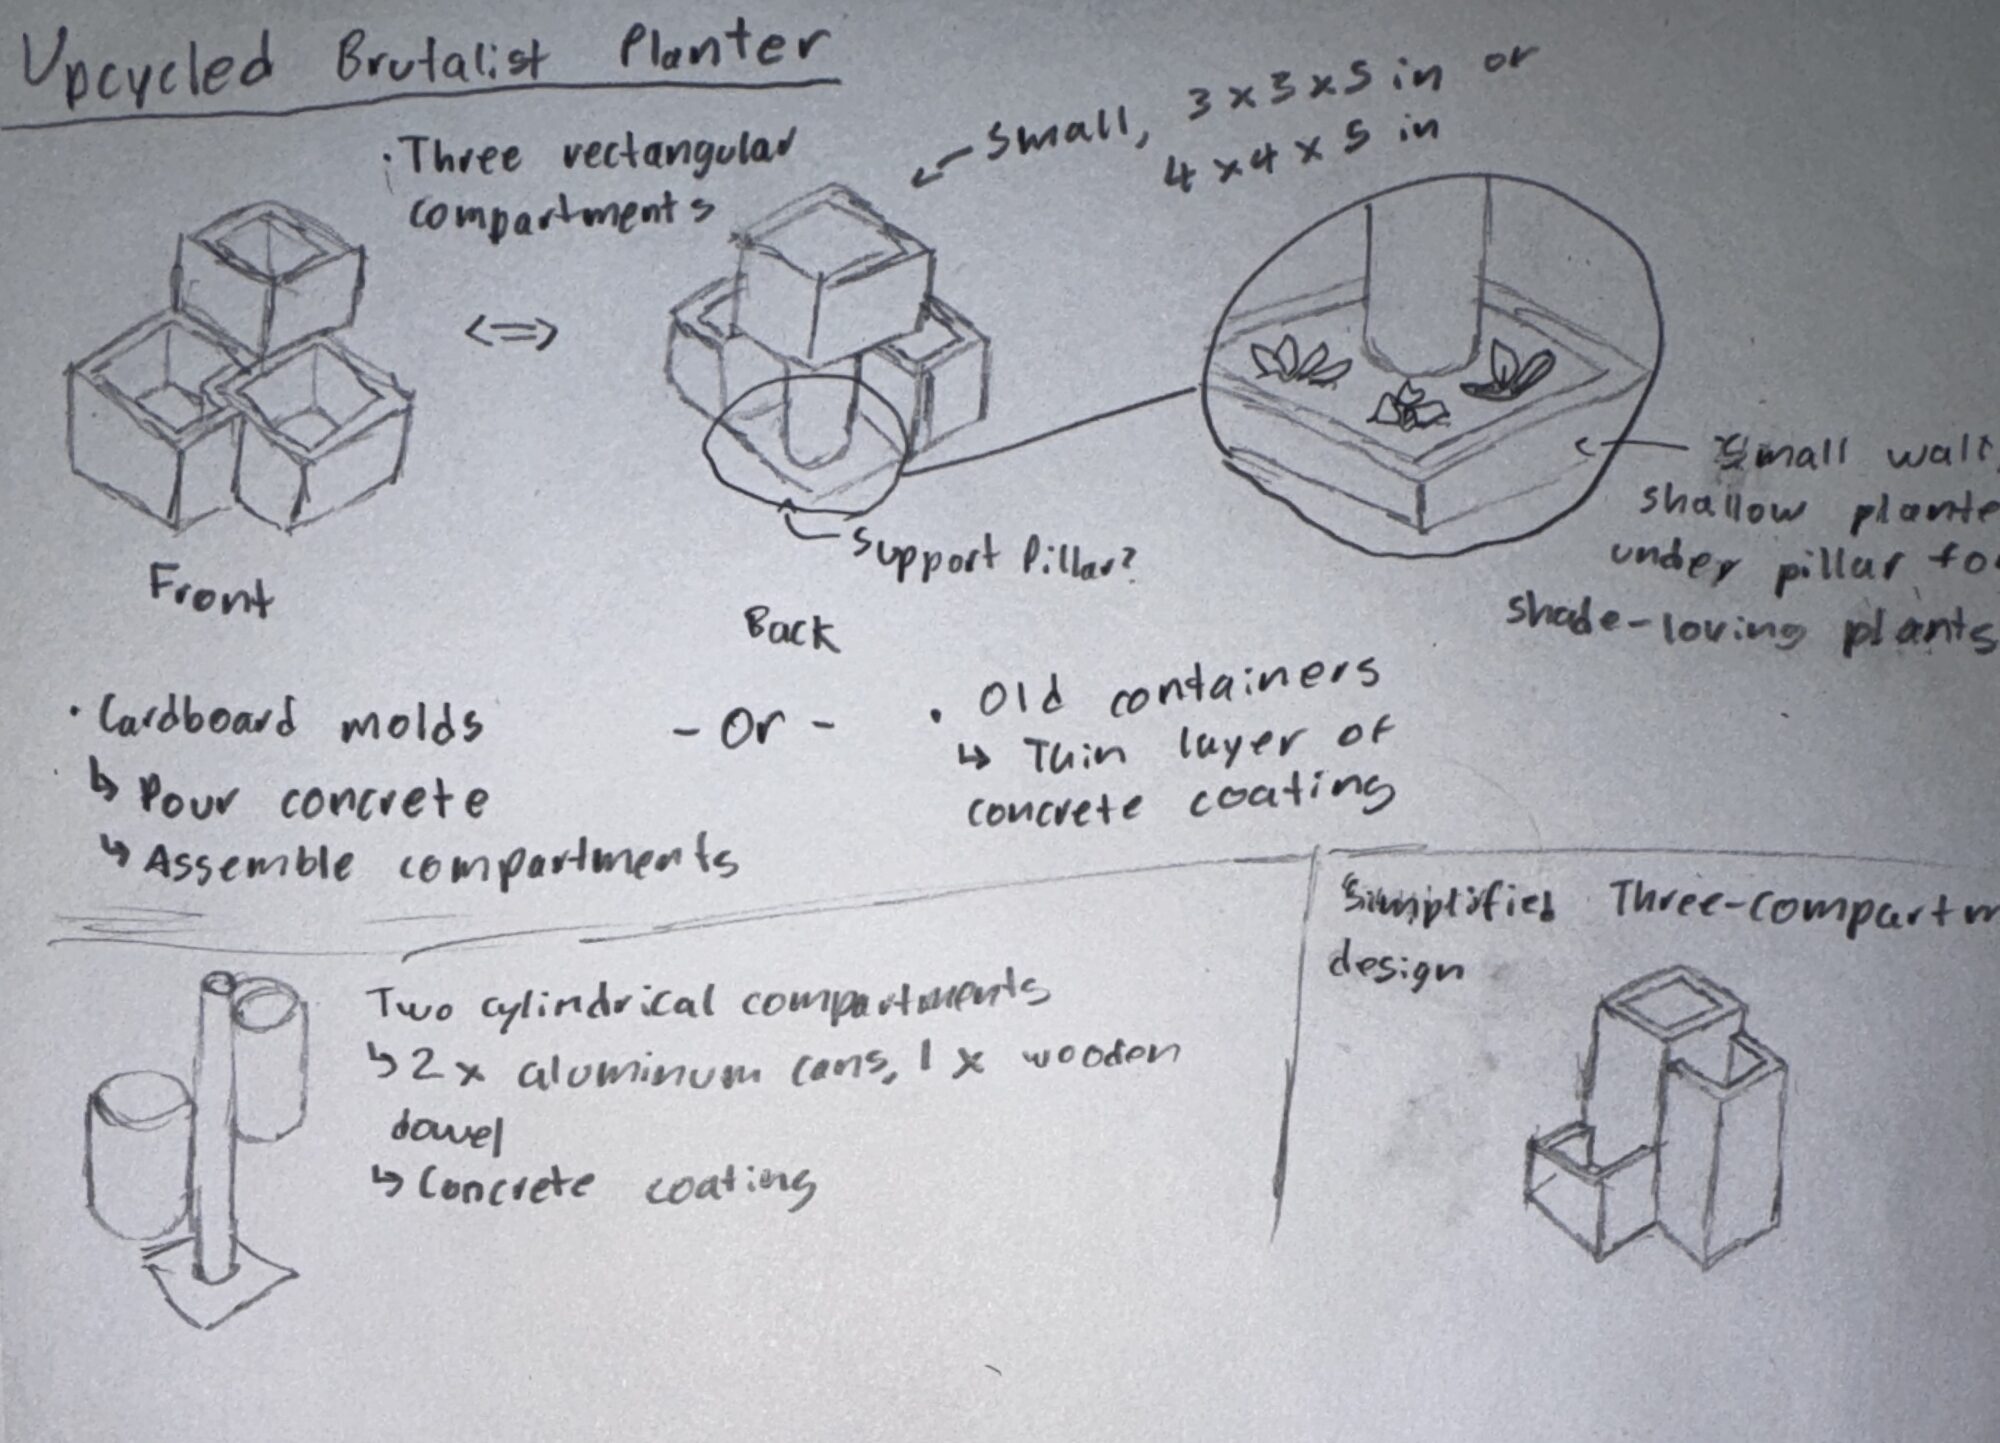 Upcycled Brutalist Planter
· Three rectangular
compartments
small, 3 x 3 x 5 in or
4 x 4 x 5 in
<=>
Support Pillar?
Small wall,
shallow plante
under pillar fo
shade-loving plants
Front
Back
· Cardboard molds
↳ Pour concrete
↳ Assemble compartments
- Or -
· Old containers
↳ Thin layer of
concrete coating
Two cylindrical compartments
↳ 2 x aluminum cans, 1 x wooden
dowel
↳ Concrete coating
Simplified Three-compartm
design